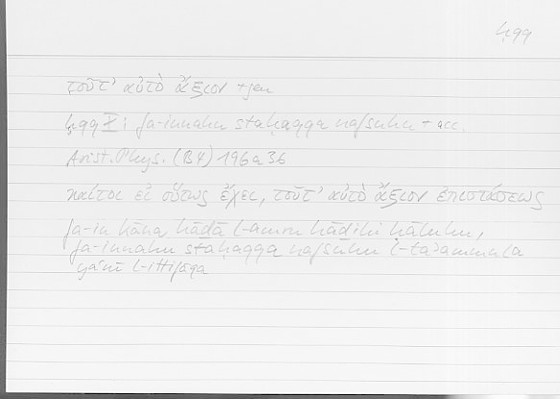 ḥqq
τοῦτ' αὐτὸ ἄξιον + gen
ḥqq X: fa-innahu staḥaqqa nafsuhu + acc.
Arist. Phys. (B4) 196a36
καίτοι εἰ οὕτως ἔχει, τοῦτ' αὐτὸ ἄξιον ἐπιστάσεως
fa-in kāna hāḏā l-amru hāḏihī ḥāluhu,
fa-innahu staḥaqqa nafsuhu l-taʾammula
yaʿnī l-ittifāqa